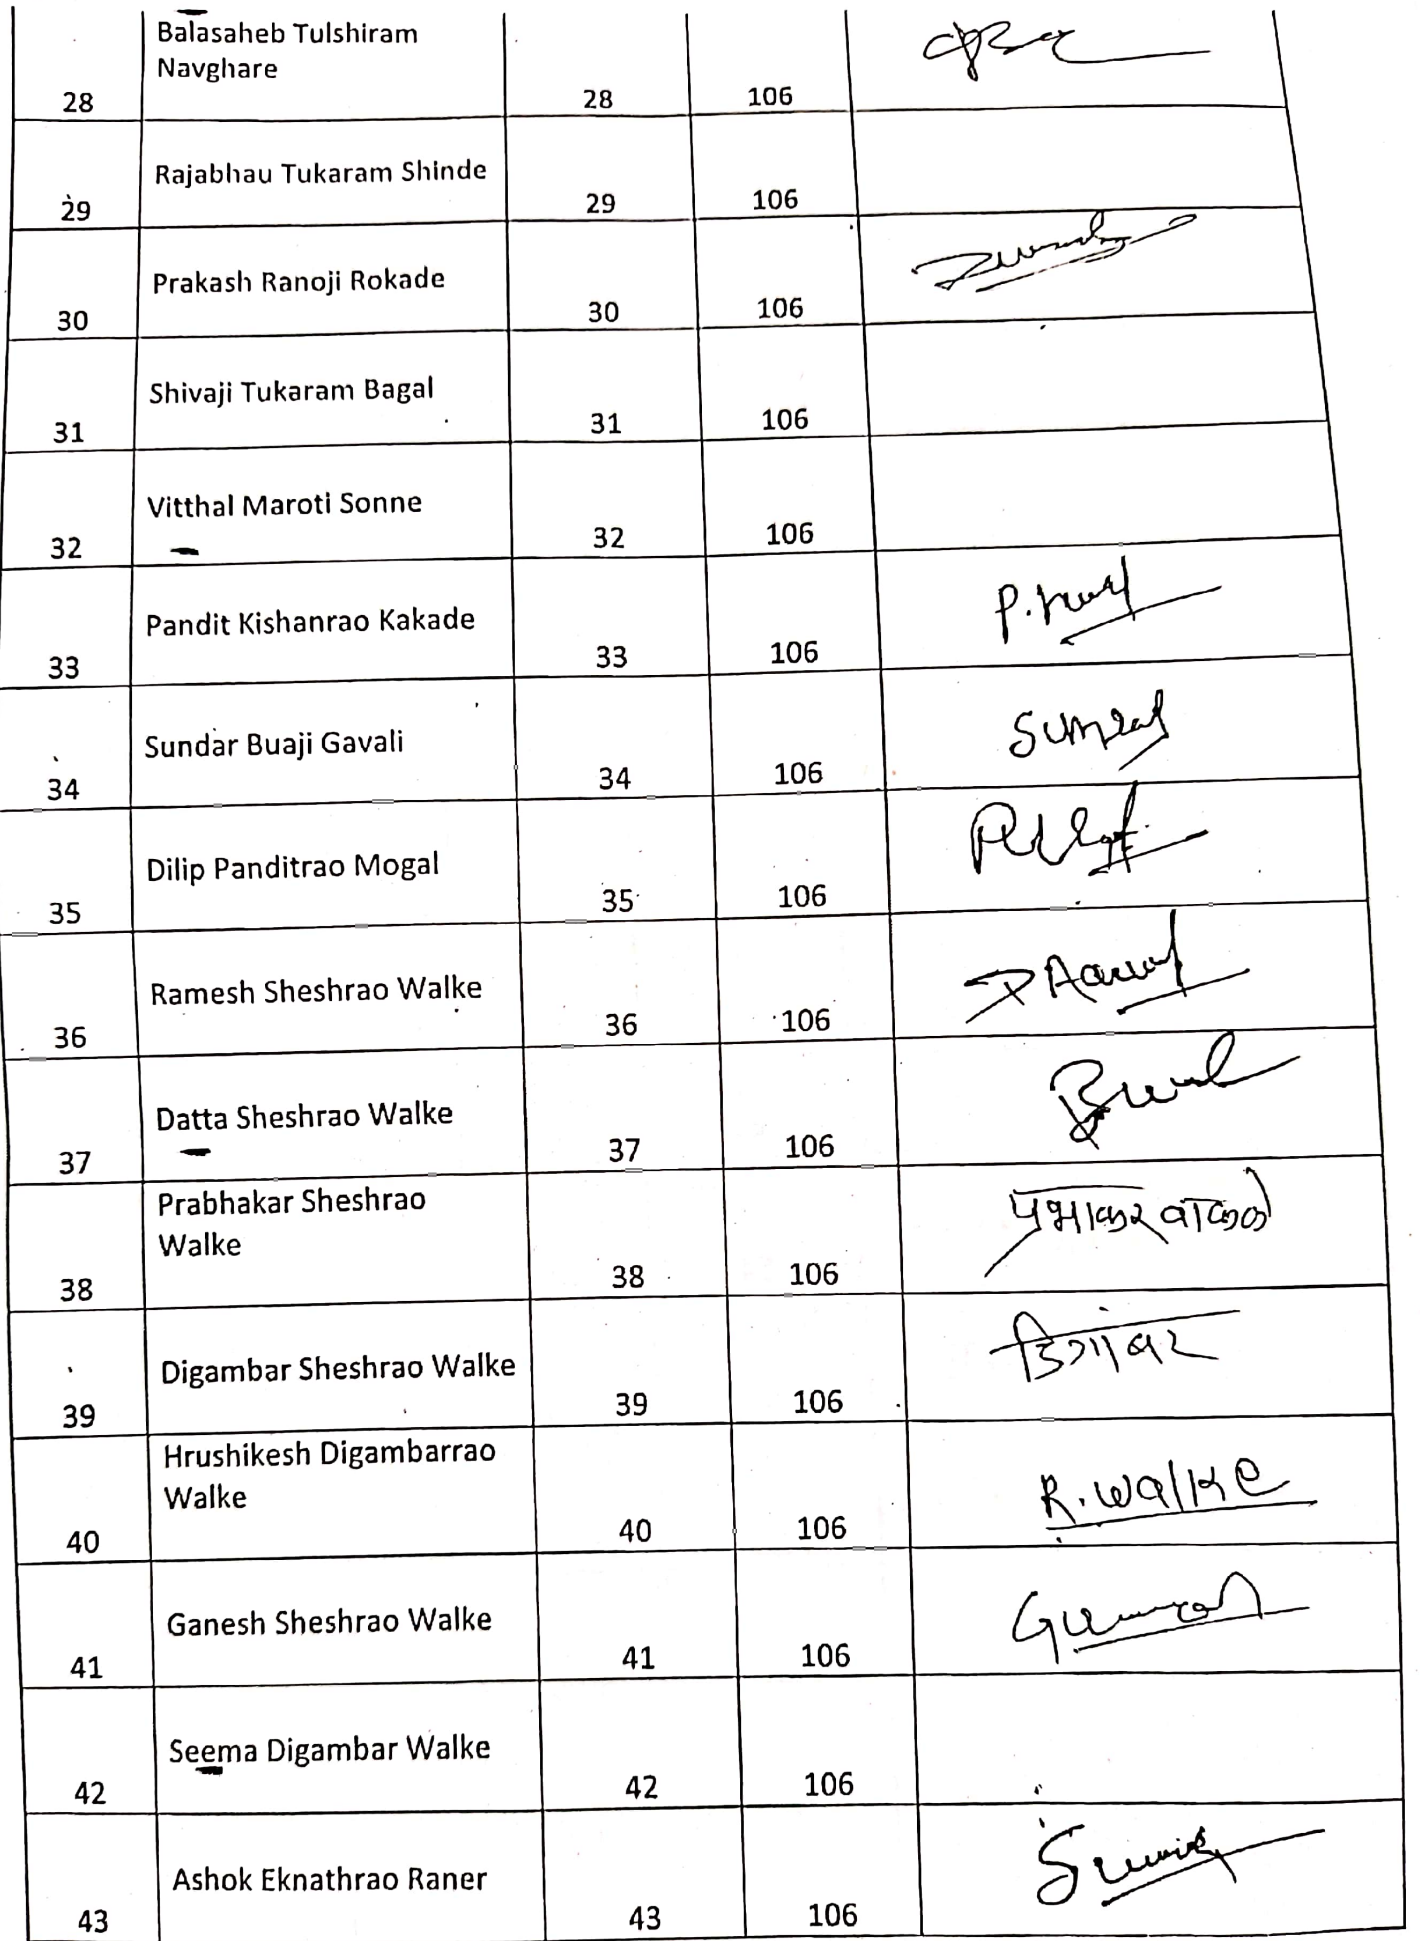 Balasaheb Tulshiram
Navghare
28 28 106
Rajabhau Tukaram Shinde
29 29 106
Prakash Ranoji Rokade
30 30 106
Shivaji Tukaram Bagal
31 31 106
Vitthal Maroti Sonne
32 32 106
Pandit Kishanrao Kakade
33 33 106
Sundar Buaji Gavali
34 34 106
Dilip Panditrao Mogal
35 35 106
Ramesh Sheshrao Walke
36 36 106
Datta Sheshrao Walke
37 37 106
Prabhakar Sheshrao
Walke
प्रभाकर वाळके
38 38 106
Digambar Sheshrao Walke
डिगांबर
39 39 106
Hrushikesh Digambarrao
Walke
R. Walke
40 40 106
Ganesh Sheshrao Walke
41 41 106
Seema Digambar Walke
42 42 106
Ashok Eknathrao Raner
43 43 106